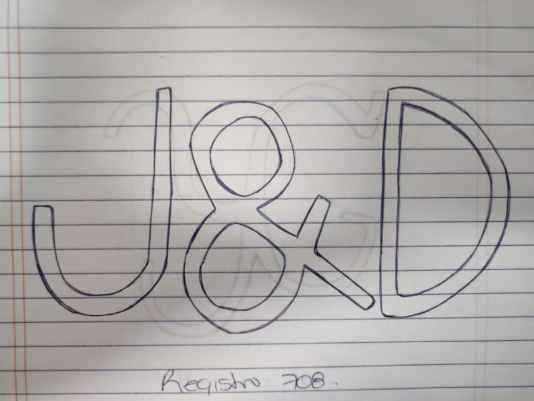 J&D
Registro 708.